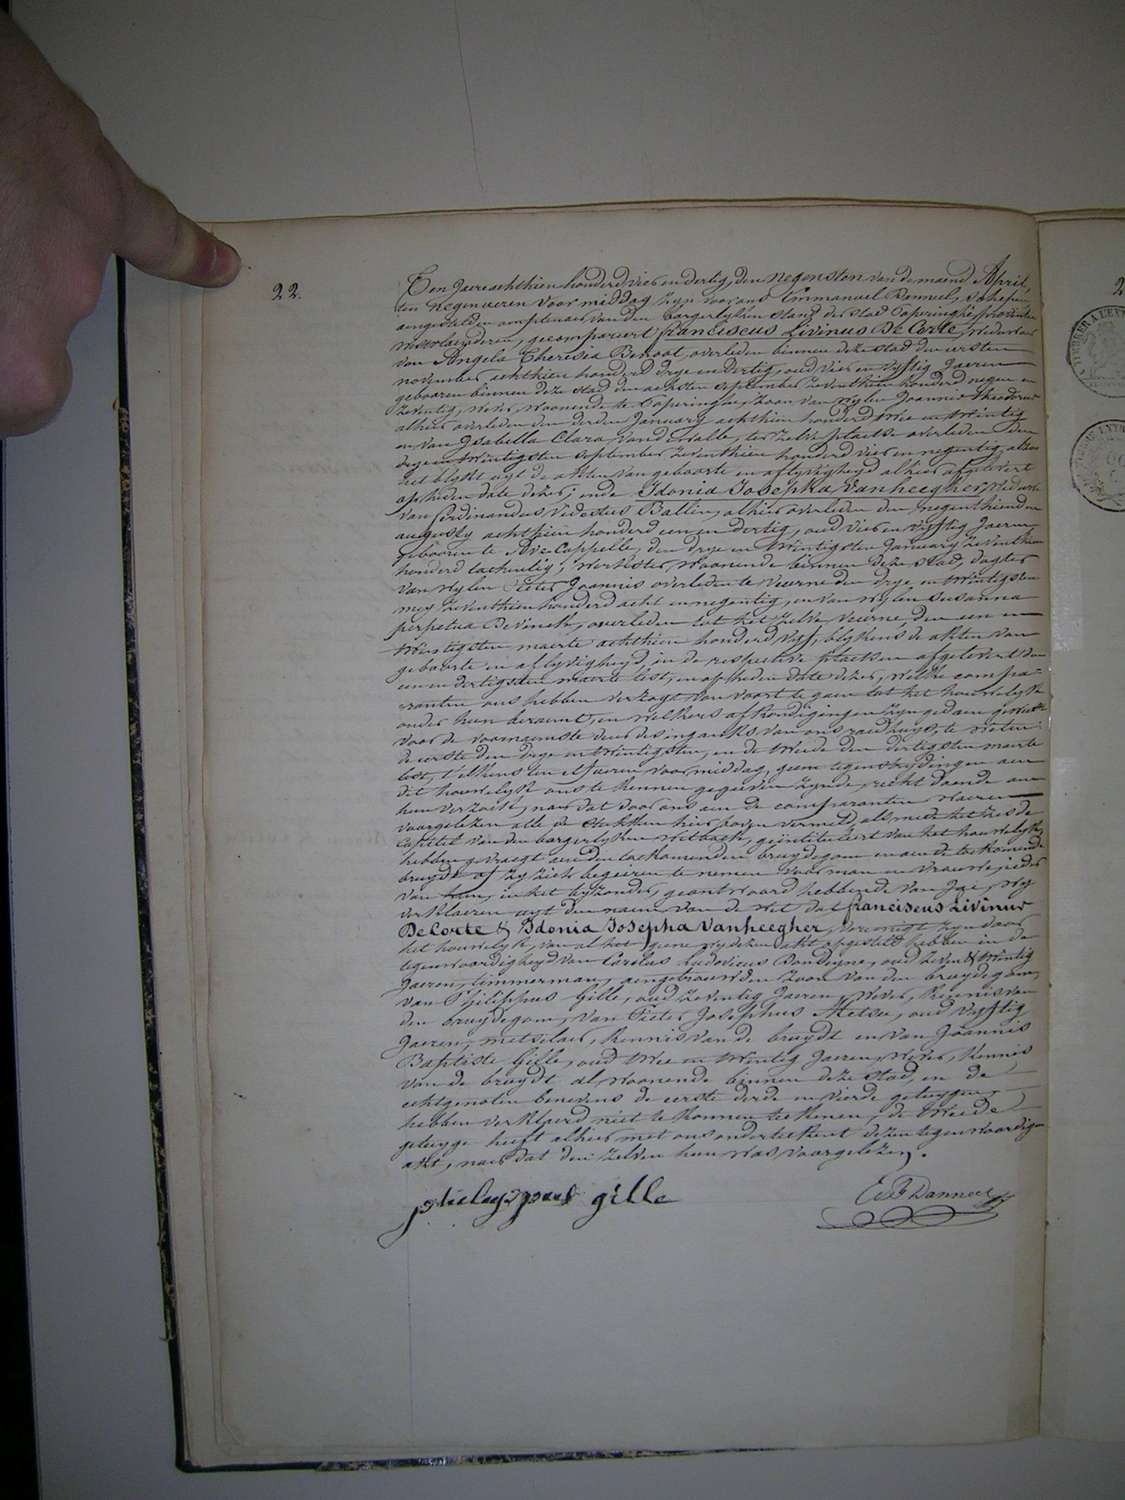 22.
Ten Jaere achthien honderd vier en dertig, den negensten van de maend April,
ten negen ueren voor middag zyn voor ons Emmanuel schepen
ambtenaer van den burgerlyken stand der stad Poperinghe provintie
westvlaenderen, gecompareert franciscus Livinus De Corte, weduwaer
van Angela Theresia Benoot, overleden binnen deze stad den eersten
november achthien honderd drye en dertig, oud vier en vyftig Jaeren
gebooren binnen deze stad den achsten september zeventhien honderd negen en
zeventig, wever, woonende te Poperinghe, zoon van wylen Joannes Theodorus
alhier overleden den derden January achthien honderd twee en twintig
en van Isabella Clara vande Walle, ter zelve plaetse overleden den
drye en twintigsten september zeventhien honderd vier en negentig, alles
het blykt uyt de akten van geboorte en aflyvigheyd alhier afgelevert
op heden date dezer; ende Idonia Josepha Vanheegher, weduwe
van ferdinandus Vedestus Ballin, alhier overleden den negenthienden
augusty achthien honderd een en dertig, oud vier en vyftig Jaeren
gebooren te Avecappelle, den drye en twintigsten January zeventhien
honderd tachentig, werkster, woonende binnen deze stad, dogter
van wylen Pieter Joannis overleden te veurne den drye en twintigsten
mey zeventhien honderd acht en negentig, en van wylen susanna
perpetua Devinck, overleden tot het zelve veurne, den een en
twintigsten maerte achthien honderd vyf, blykens de akten van
geboorte en aflyvigheyd, in de respective plaetsen afgelevert den
een en dertigsten maerte lest, en op heden date dezer, welke compa-
ranten ons hebben verzogt van voort te gaen tot het houwelyk
onder hun beraemt, en welkers afkondigingen zyn gedaen geweest
voor de voornaemste deur des ingankx van ons raedhuys, te weten:
de eerste den drye en twintigsten, en de tweede den dertigsten maerte
lest, t'elkens ten elf ueren voor middag, geene tegenstrydingen aen
dit houwelyk ons te kennen gegeven zynde, recht doende aen
hun verzoek, naer dat door ons aen de comparanten waeren
voorgelezen alle de stukken hier boven vermeld, als mede het zesde
capittel van den burgerlyken wetboek, geïntituleert van het houwelyk,
hebben gevraegt aen den toekomenden bruydegom en aen de toekomende
bruydt of zy zich begeeren te nemen voor man en vrouwe, ieder
van hun, in het byzonder, geantwoord hebbende van Jae, wy
verklaeren uyt den naem van de wet dat franciscus Livinus
De Corte & Idonia Josepha Vanheegher, vereenigt zyn door
het houwelyk, van al het geene wy dezen akt opgesteld hebben in de
tegenwoordigheyd van Carolus Ludovicus oud zeven & twintig
Jaeren, timmerman, aengetrouwden zoon van den bruydegom,
van Philippus Gille, oud zeventig Jaeren, wever, kennis van
den bruydegom, van Pieter Josephus Metsu, oud vyftig
Jaeren, metselaer, kennis van de bruydt en van Joannis
Baptiste Gille, oud twee en twintig Jaeren, wever, kennis
van de bruydt al woonende binnen deze stad, en de
echtgenoten benevens de eerste derde en vierde getuygen
hebben verklaerd niet te konnen teekenen, de tweede
getuyge heeft alhier met ons onderteekent dezen tegenwoordigen
akt, naer dat den zelven hun was voorgelezen.
gille